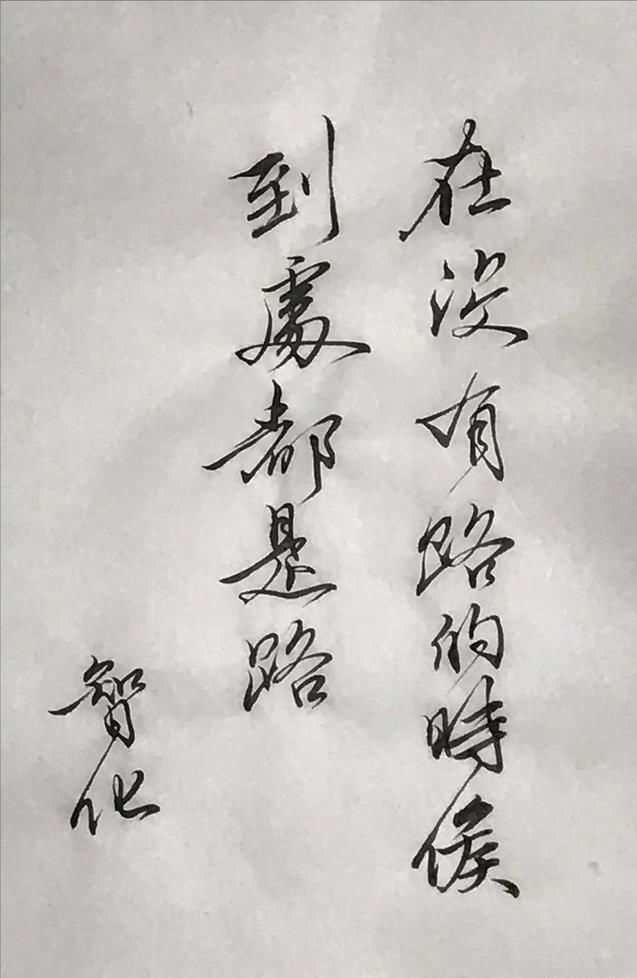 在没有路的時候
到處都是路
智化